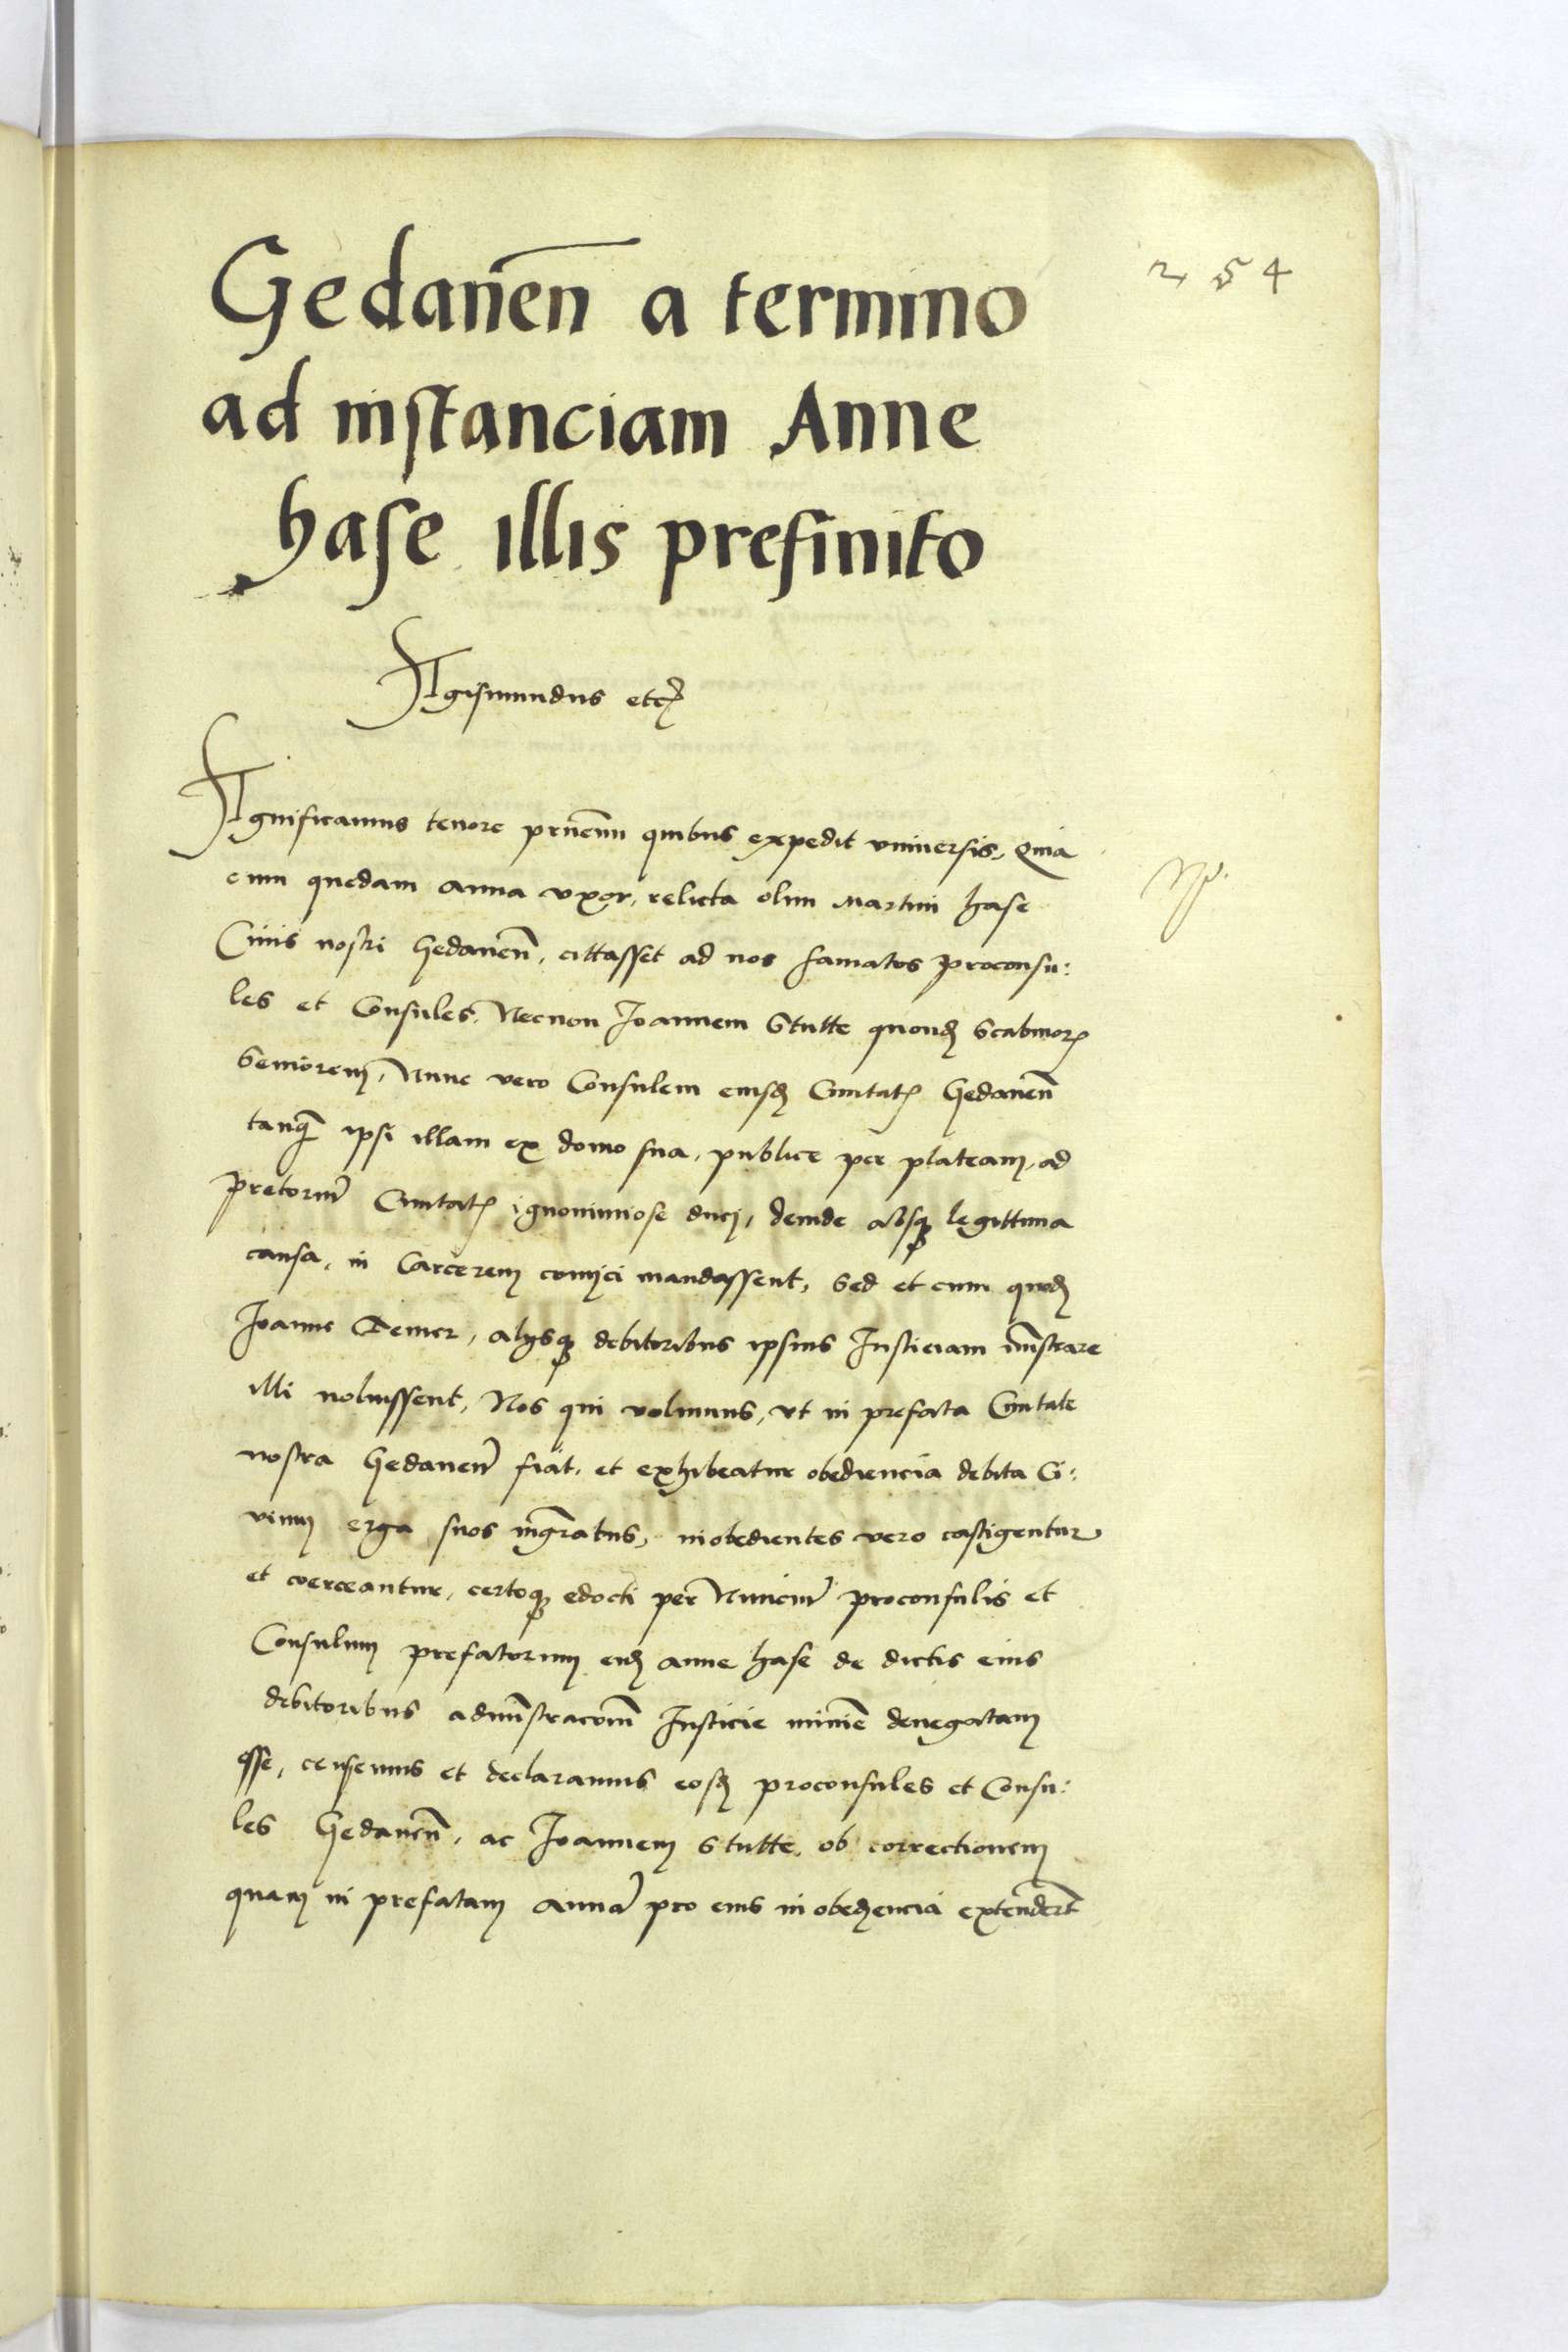 254
Gedanen̄ a termino
ad instanciam Anne
hase illis prefinito
Sigismundus etc̄
Significamus tenore prn̄cium quibus expedit vniuersis, Quia
cum quedam Anna vxor, relicta olim Martini hase
Ciuis nostri Gedanen̄, cittasset ad nos famatos proconsu:
les et Consules, Necnon Joannem Stutte quond̄ Scabinor̄
Seniorem, Nunc vero Consulem eiusd̄ Ciuitat̄ Gedanen̄
tanq̄ ipsi illam ex domo sua, publice per plateam, ad
pretoriū Ciuitat̄ ignominiose duci, deinde absq̄ legittima
causa, in Carcerem conijci mandassent, Sed et cum quod̄
Joanne aliysq̄ debitoribus ipsius Justiciam mn̄strare
illi noluissent, Nos qui volumus, vt in prefata Ciuitate
nostra Gedanen̄ fiat, et exhibeatur obediencia debita Ci:
uium erga suos mgr̄atus, inobedientes vero castigentur
et coerceantur, certoq̄ edocti per Nunciū proconsulis et
Consulum prefatorum eid̄ Anne hase de dictis eius
debitoribus admn̄stracom̄ Justicie minie denegatam
esse, censemus et declaramus eosd̄ proconsules et Consu:
les Gedanen̄, ac Joannem Stutte, ob correctionem
quam in prefatam Annā pro eius inobed̄encia extender̄t